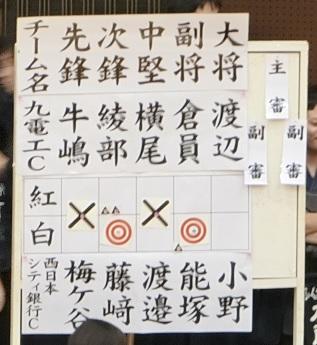 チーム名 先鋒 次鋒 中堅 副将 大将
九電工C 牛嶋 綾部 横尾 倉員 渡辺
紅
白
西日本シティ銀行C 梅ケ谷 藤﨑 渡邉 能塚 小野
主審
副審
副審